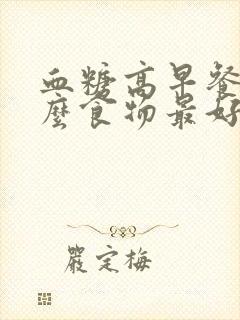 血糖高早餐
麼食物最好
嚴定梅